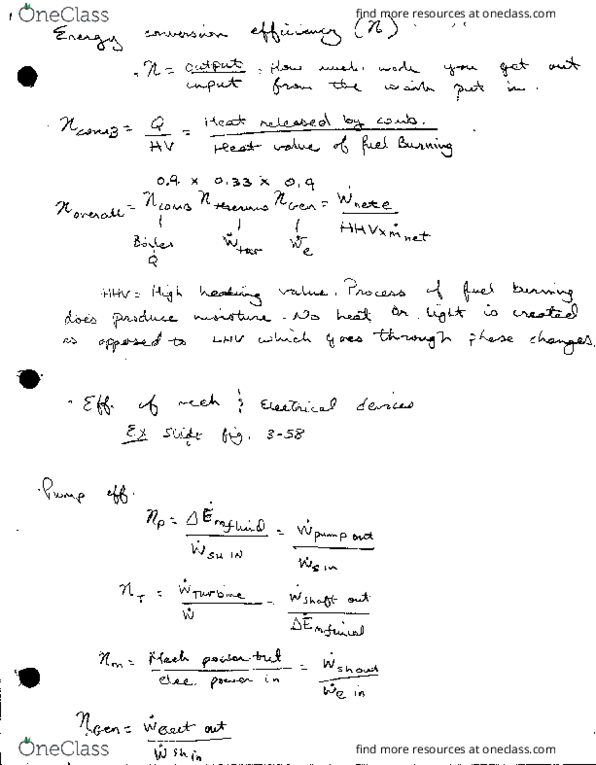 OneClass
find more resources at oneclass.com
Energy conversion efficiency (η)
· η = output / input · How much work you get out from the work put in.
η comb = Q / HV = Heat released by comb. / Heat value of fuel Burning
0.9 × 0.33 × 0.9
η overall = η comb η thermo η Gen = Ẇ net e / HHV × ṁ net
Boiler Q Ẇ tur Ẇ e
HHV = High heating value. Process of fuel burning
does produce moisture. No heat or light is created
as opposed to LHV which goes through phase changes.
· Eff. of mech & Electrical devices
Ex Slide fig. 3-58
· Pump eff.
η P = Δ Ė m fluid / Ẇ SH IN = Ẇ pump out / Ẇ s in
η T = Ẇ Turbine / Ẇ = Ẇ shaft out / Δ Ė m fluid
η m = Mech power out / elec. power in = Ẇ sh out / Ẇ e in
η Gen = Ẇ elect out / Ẇ sh in
OneClass
find more resources at oneclass.com